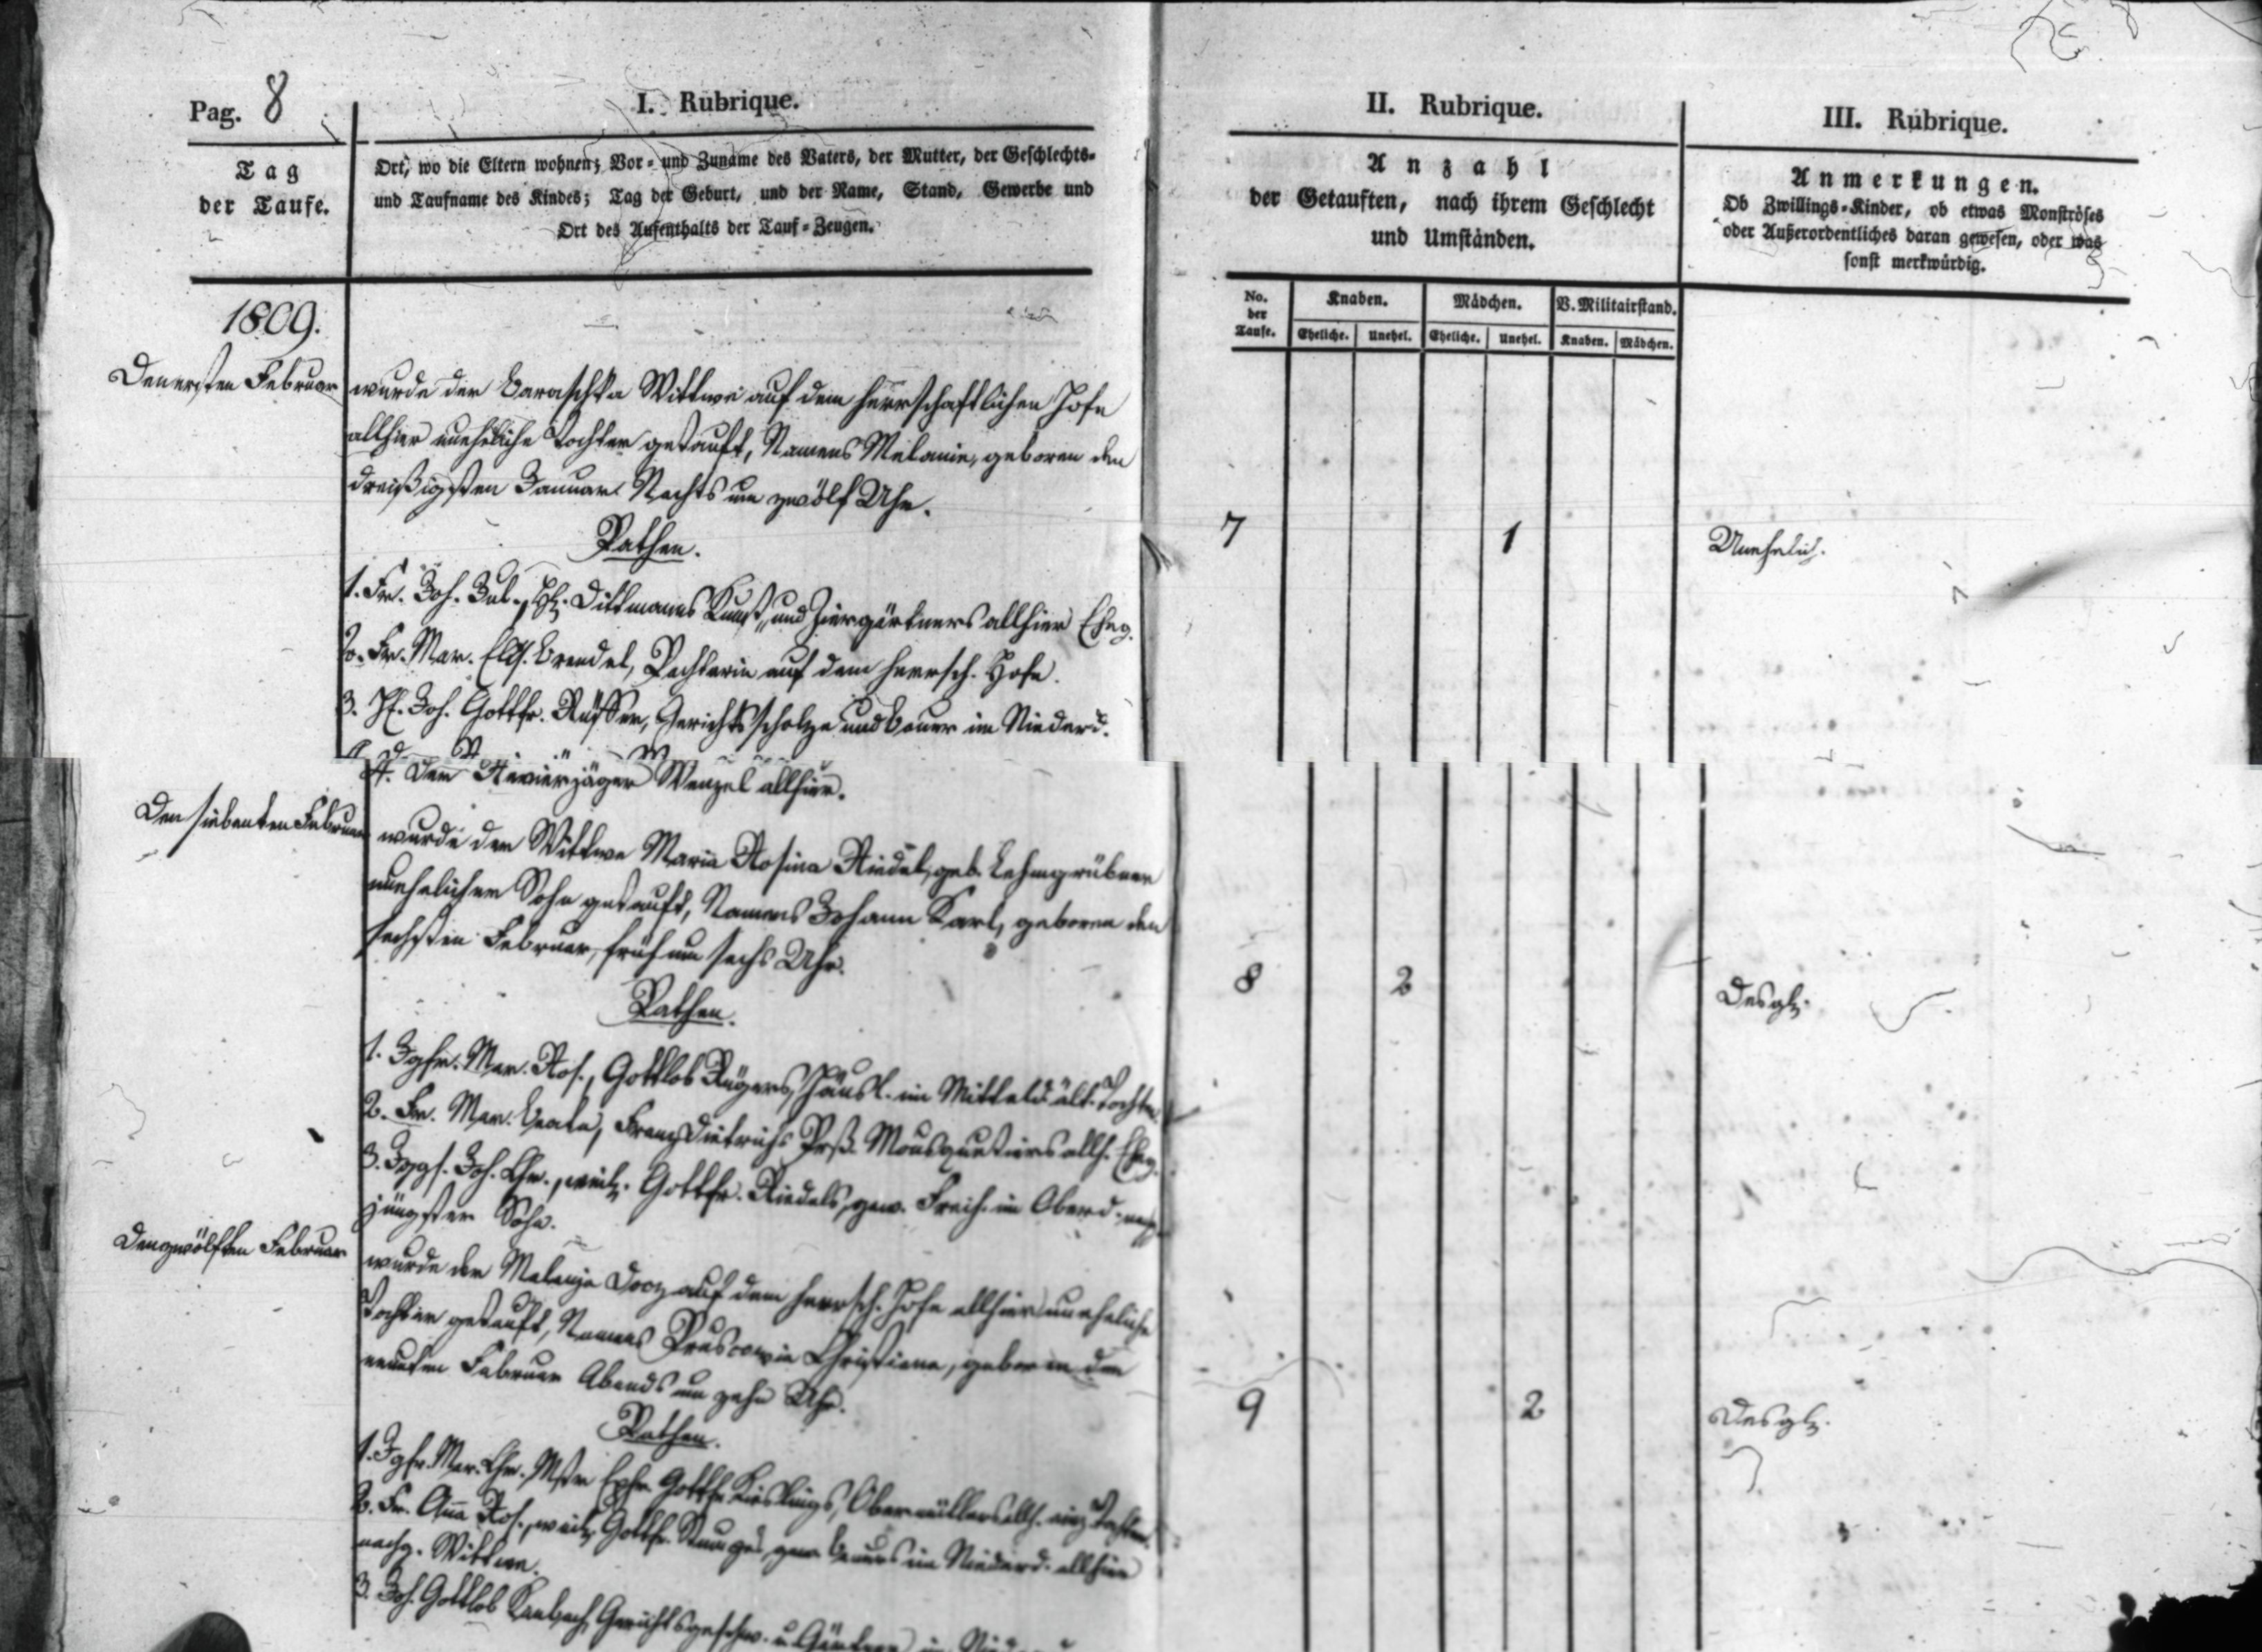 Pag. 8
I. Rubrique.
II. Rubrique.
III. Rubrique.
Tag
der Taufe.
Ort, wo die Eltern wohnen; Vor- und Zuname des Vaters, der Mutter, der Geschlechts-
und Taufname des Kindes; Tag der Geburt, und der Name, Stand, Gewerbe und
Ort des Aufenthalts der Tauf-Zeugen.
Anzahl
der Getauften, nach ihrem Geschlecht
und Umständen.
Anmerkungen.
Ob Zwillings-Kinder, ob etwas Monströses
oder Außerordentliches daran gewesen, oder was
sonst merkwürdig.
No. der Taufe.
Knaben. Mädchen. V. Militairstand.
Eheliche. Unehel. Eheliche. Unehel. Knaben. Mädchen.
1809.
Den ersten Februar
wurde der Wittwe auf dem herrschaftlichen Hofe
allhier uneheliche Tochter getauft, Namens Melanie, geboren den
dreißigsten Januar Nachts um zwölf Uhr.
7 1 Unehelich.
Pathen.
1. Fr. Joh. Jul., Dittmanns Kunst- und Ziergärtners allhier Eheg.
2. Fr. Mar. Elis. Brendel, Pachterin auf dem herrsch. Hofe.
3. Joh. Gottfr. Gerichtsscholze und Bauer im Niederd.
4. Der Revierjäger Wenzel allhier.
Den siebenten Februar
wurde der Wittwe Maria Rosina Riedel, geb. Lehmgrübner
unehelicher Sohn getauft, Namens Johann Karl, geboren den
sechsten Februar, früh um sechs Uhr.
8 2 Desgl.
Pathen.
1. Jgfr. Mar. Ros., Gottlob Häusl. im Mitteld. ält. Tochter.
2. Fr. Mar. Beata, Franz Dietrichs Mousquetiers allh. Eheg.
3. Jggs. Joh. Chr., weil. Gottfr. Riedels, gew. Freih. im Oberd.
jüngster Sohn.
Den zwölften Februar
wurde der auf dem herrsch. Hofe allhier uneheliche
Tochter getauft, Namens Christiana, geboren den
neunten Februar Abends um zehn Uhr.
9 2 Desgl.
Pathen.
1. Jgfr. Mar. Chr. Mstr. Gottfr. Obermüllers allh. einz. Tochter.
2. Fr. Anna Ros., weil. Gottfr. gew. Bauers im Niederd. allhier
nachg. Wittwe.
3. Joh. Gottlob